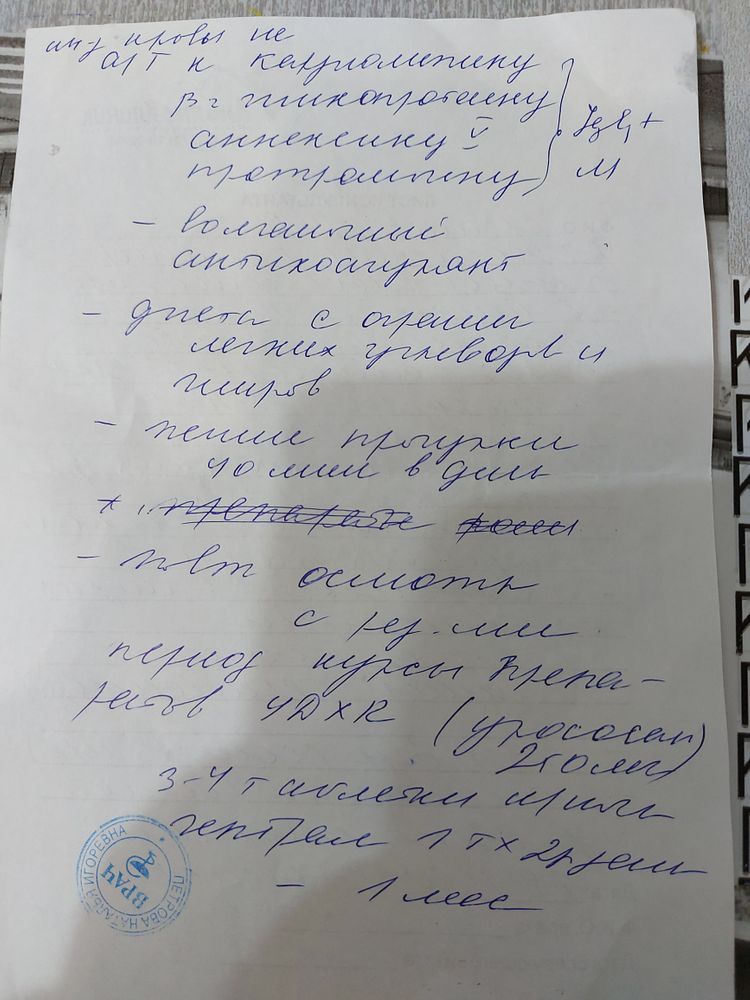 ан-з крови не
а/т к кардиолипину
β2 гликопротеину
аннексину V
протромбину
IgG +
M
- волчаночный
антикоагулянт
- диета с огранич
легких углеводов и
жиров
- пешие прогулки
40 мин в день
- повт осмотр
с рез-ми
период курсы препа-
ратов УДХК (урсосан)
250 мг
3-4 таблетки
гептрал 1 т х 2 р день
- 1 мес
ПЕТРОВА НАТАЛЬЯ ИГОРЕВНА
ВРАЧ